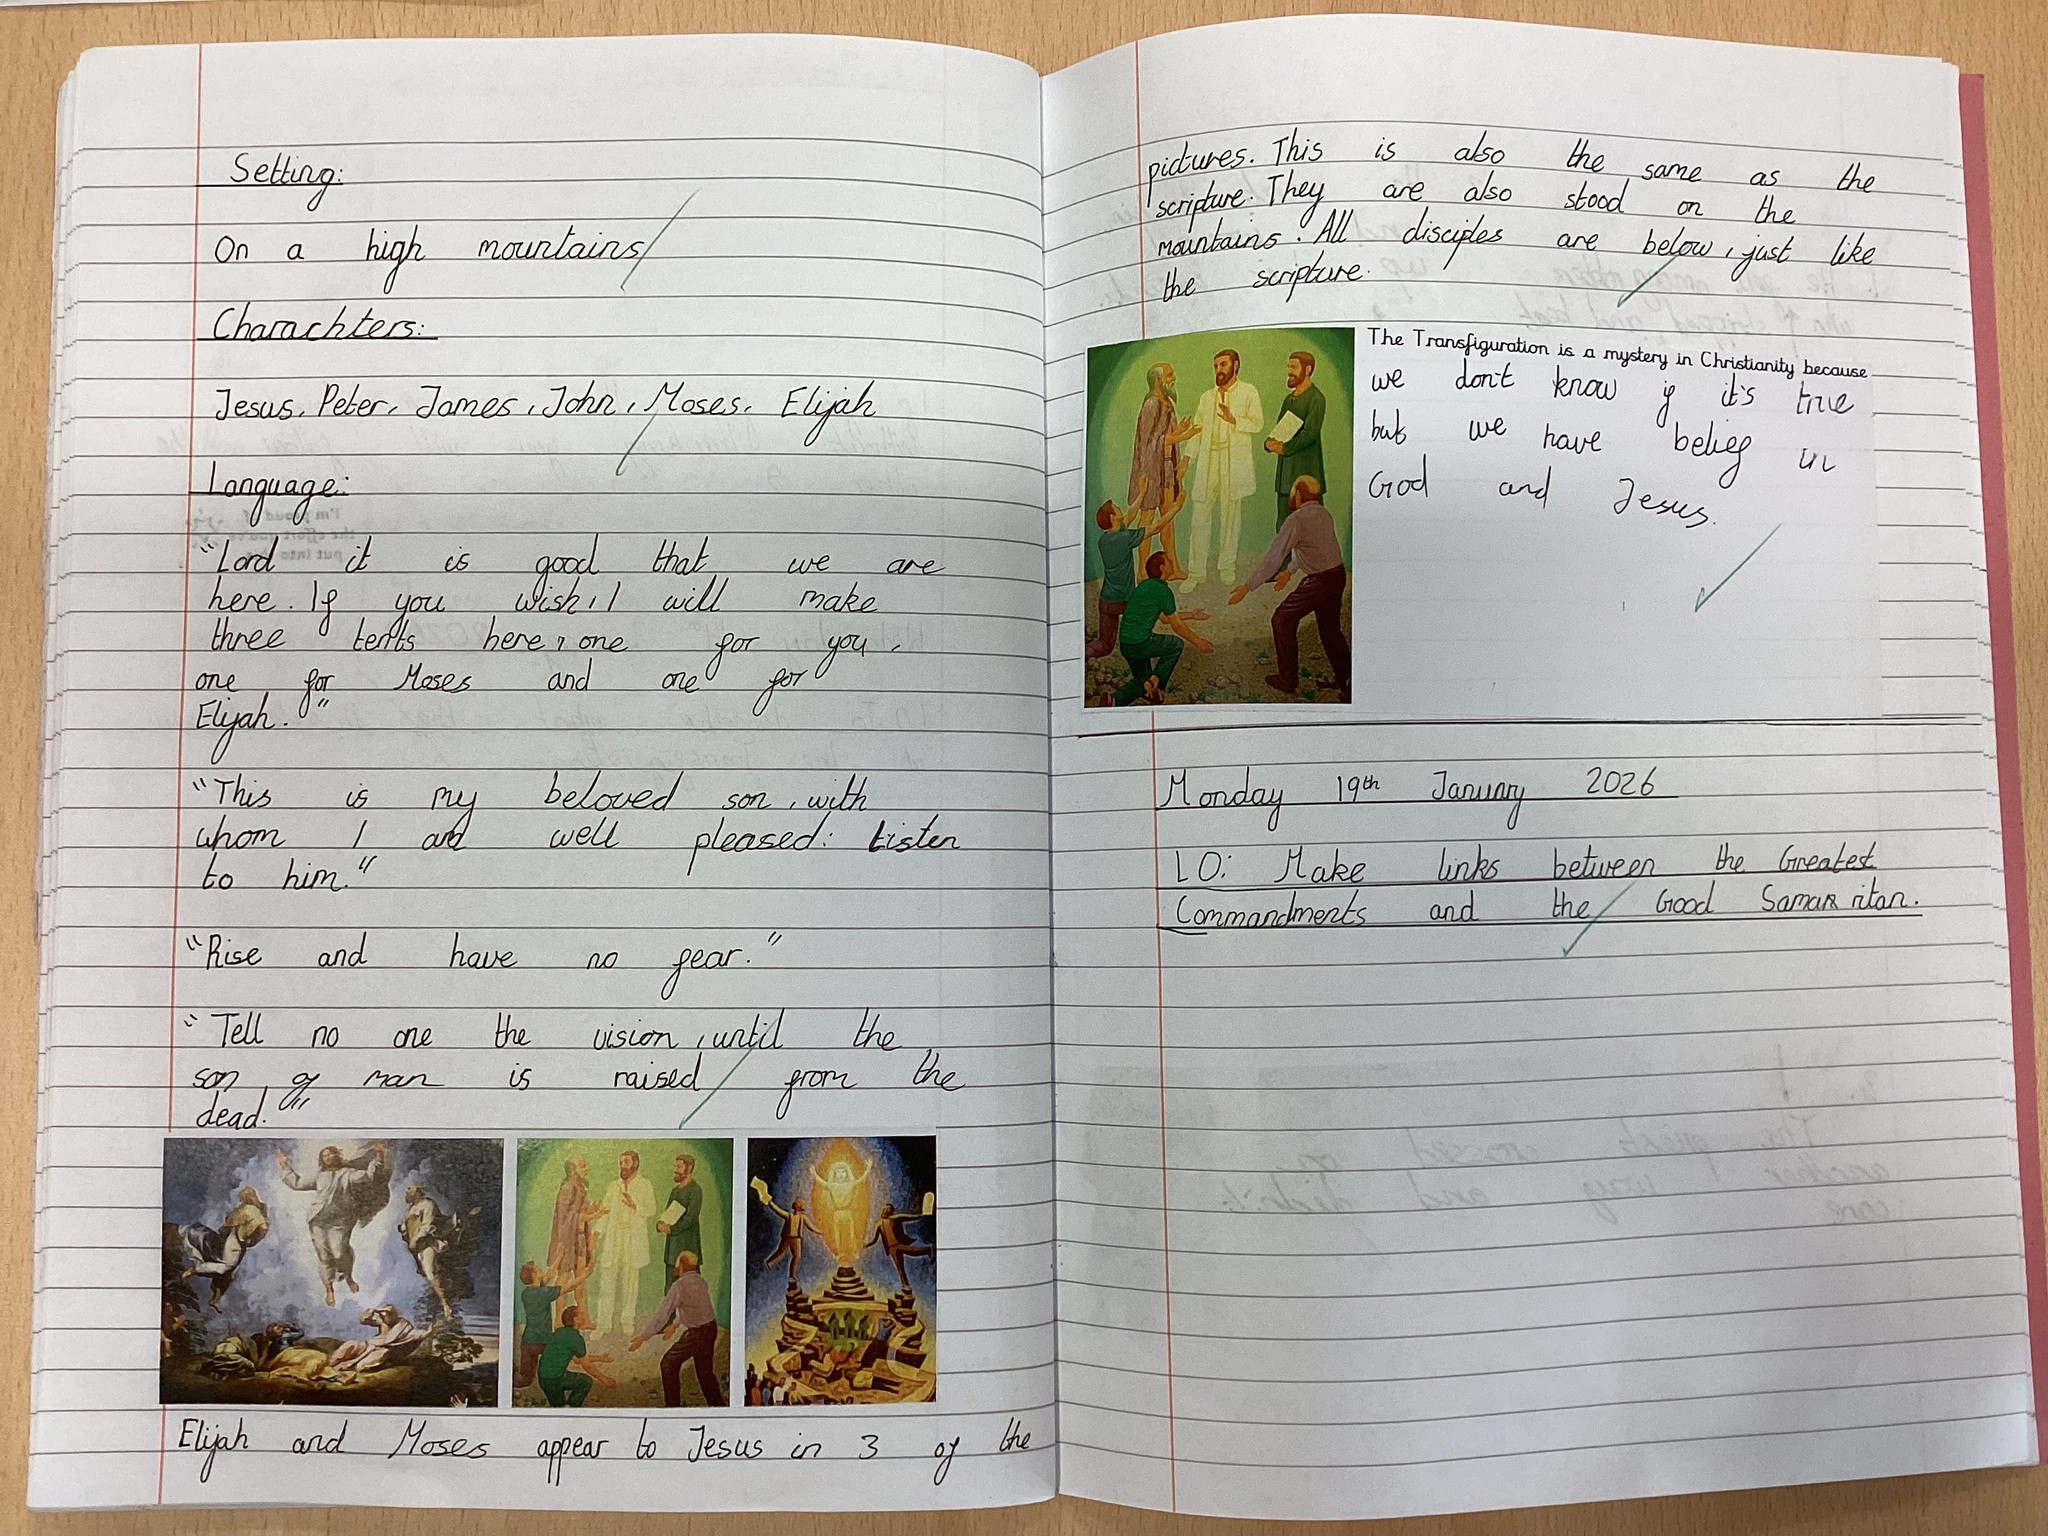 Setting:
On a high mountains
Charachters:
Jesus, Peter, James, John, Moses, Elijah
Language:
"Lord it is good that we are
here. If you wish, I will make
three tents here, one for you,
one for Moses and one for
Elijah."
"This is my beloved son, with
whom I am well pleased: Listen
to him."
"Rise and have no fear."
"Tell no one the vision, until the
son of man is raised from the
dead."
Elijah and Moses appear to Jesus in 3 of the
pictures. This is also the same as the
scripture. They are also stood on the
mountains. All disciples are below, just like
the scripture.
The Transfiguration is a mystery in Christianity because
we don't know if it's true
but we have belief in
God and Jesus.
Monday 19th January 2026
LO: Make links between the Greatest
Commandments and the Good Samaritan.